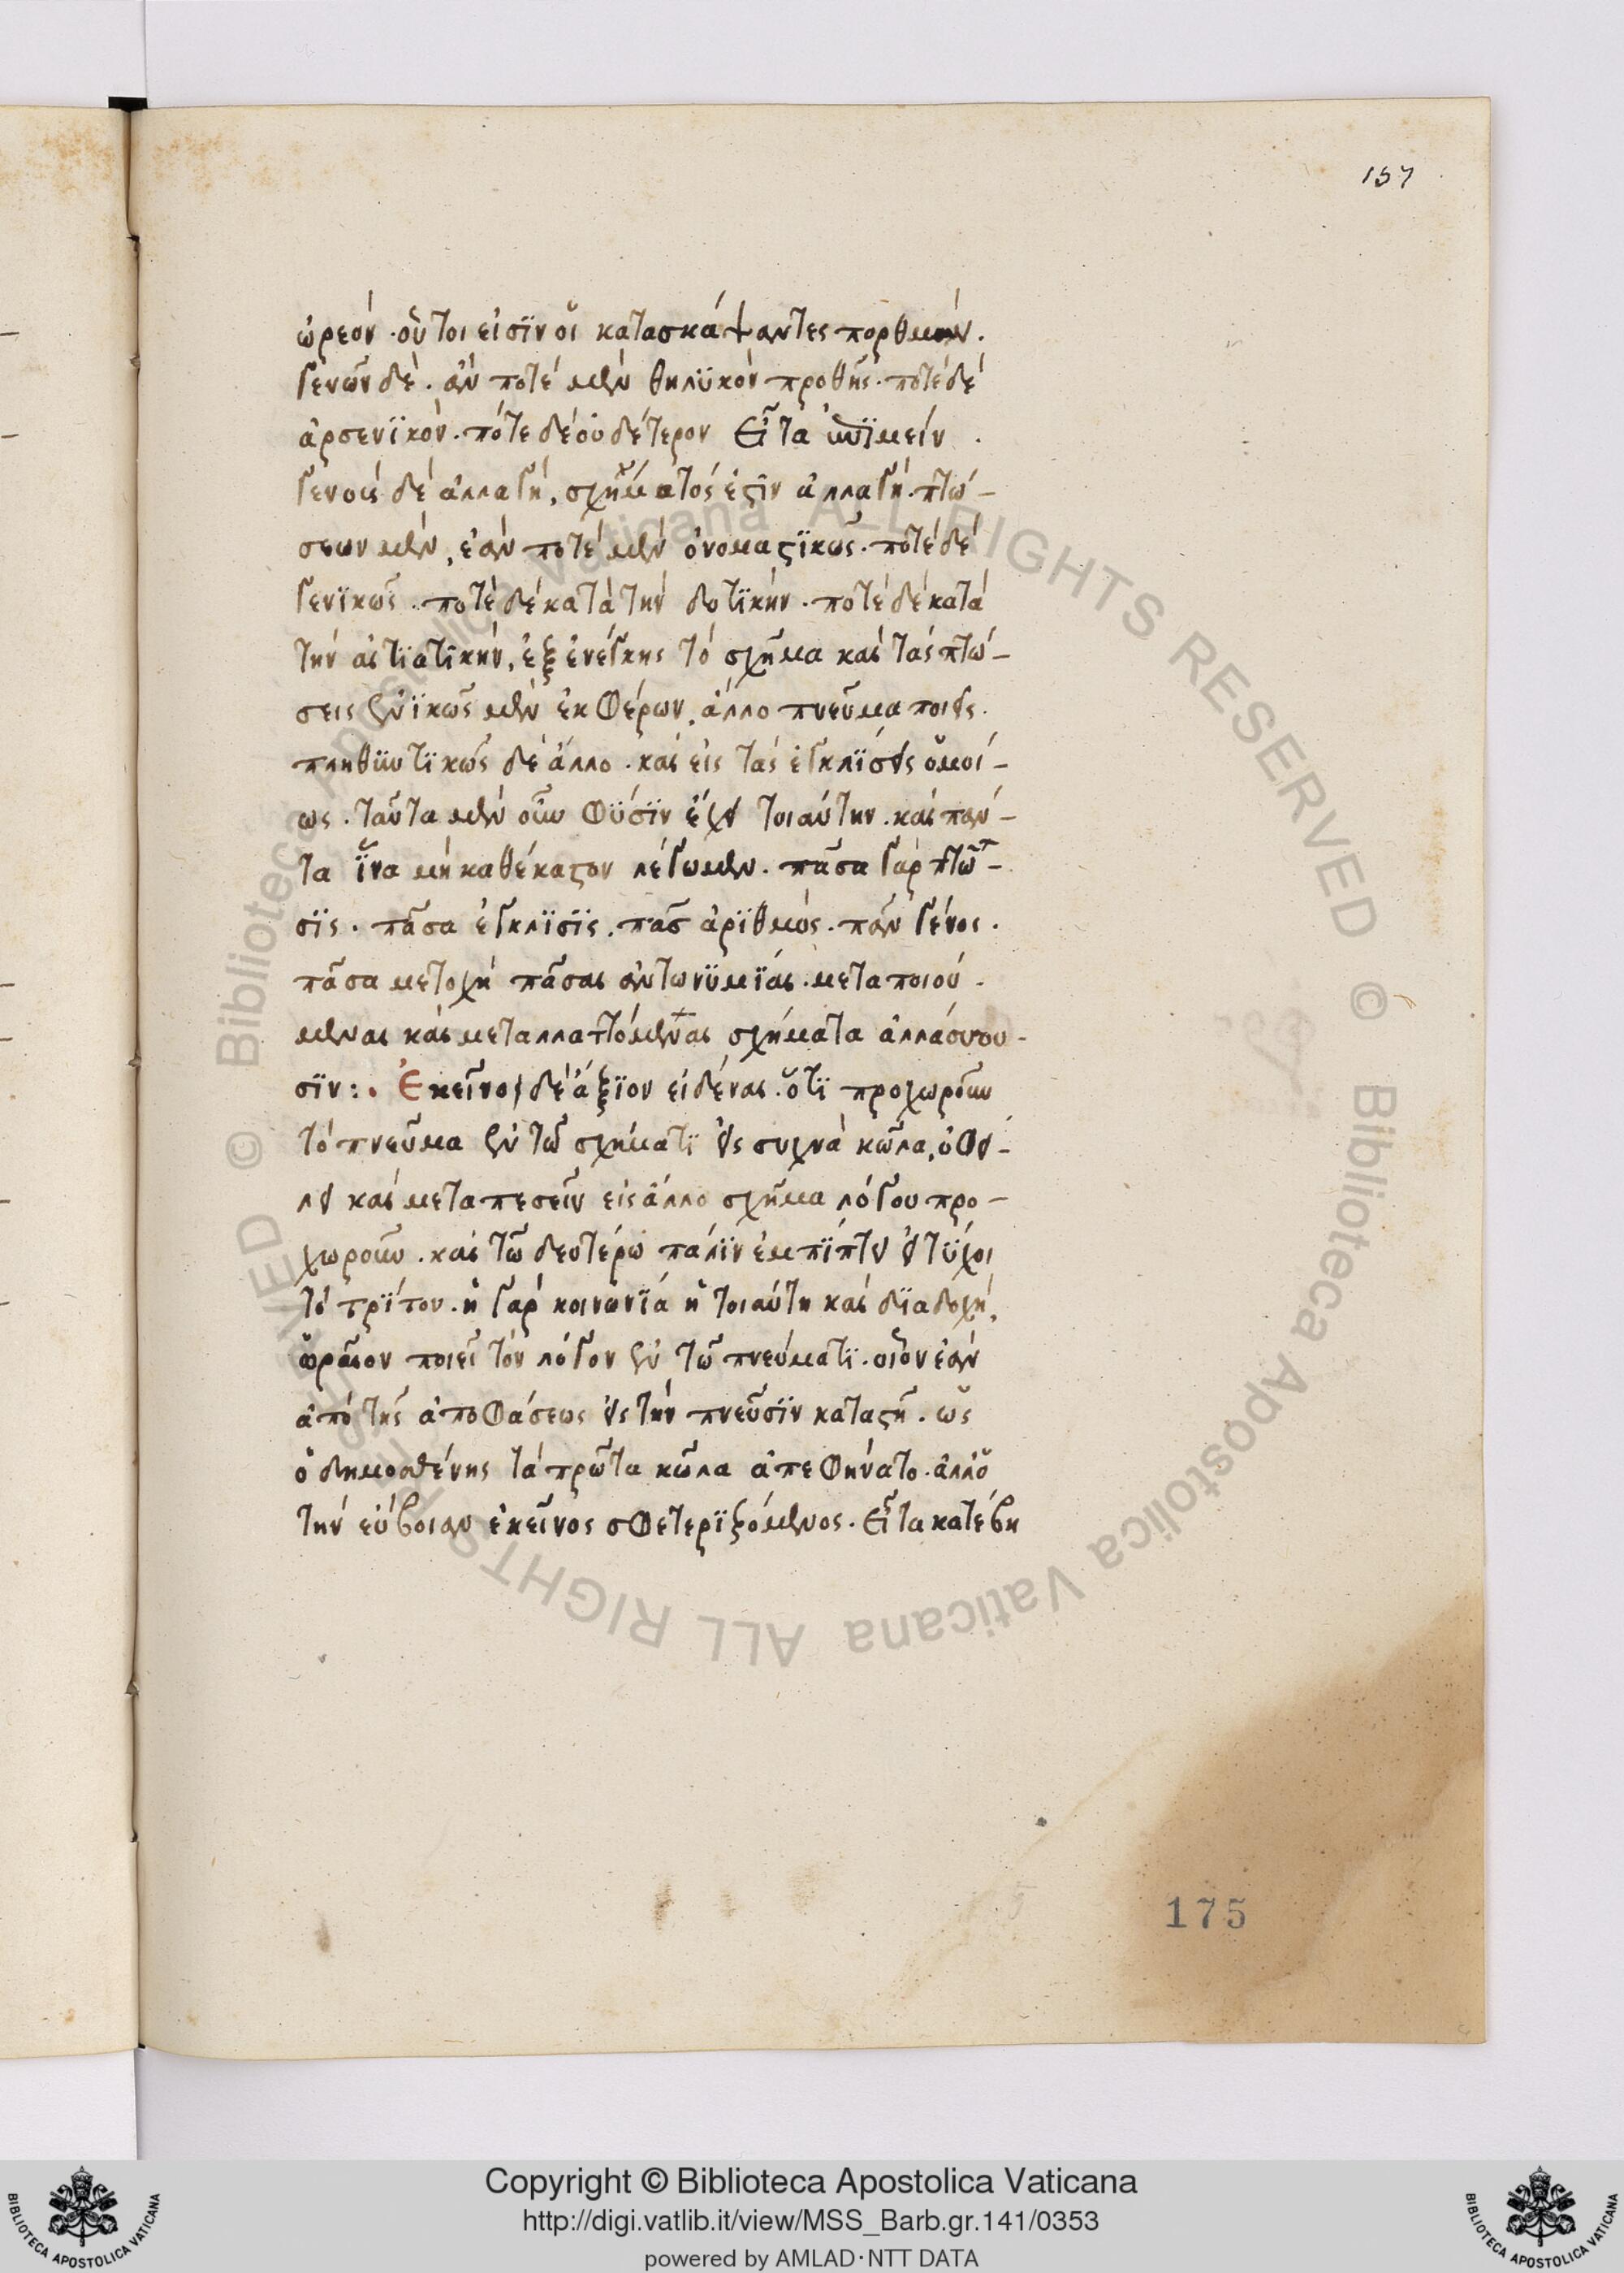 157
ὠρεόν · οὗτοι εἰσϊν οἳ κατασκάψαντες πορθμόν.
γενῶν δέ · ἂν ποτέ μὲν θηλϋκὸν προθῆς · ποτέ δέ
ἀρσενϊκόν · πότε δέ οὐδέτερον εἶτα
γένους δέ ἀλλαγή, σχήματός ἐστϊν ἀλλαγή · πτώ-
σεων μὲν, ἐάν ποτέ μὲν ὀνομαστϊκῶς · ποτέ δέ
γενϊκῶς · ποτέ δέ κατά τήν δοτϊκήν · ποτέ δέ κατά
τήν αἰτϊατϊκήν, ἐξενέγκης τό σχῆμα καί τάς πτώ-
σεις ἑνϊκῶς μὲν ἐκφέρων, ἄλλο πνεῦμα ποιεῖς.
πληθϋντϊκῶς δέ ἄλλο · καί εἰς τάς ἐγκλΐσεις ὁμοί-
ως · ταῦτα μὲν οὖν φύσϊν ἔχει τοιαύτην · καί πάν-
τα ἵνα μή καθέκαστον λέγωμεν · πᾶσα γάρ πτῶ-
σϊς · πᾶσα ἔγκλϊσϊς · πᾶσ ἀρϊθμός · πᾶν γένος ·
πᾶσα μετοχή πᾶσαι ἀντωνϋμΐαι · μεταποιού-
μεναι καί μεταλλαττόμεναι σχήματα ἀλλάσσου-
σϊν : · Ἐκεῖνο δέ ἄξϊον εἰδέναι · ὅτϊ προχωροῦν
τό πνεῦμα ἐν τῶ σχήματϊ εἰς συχνά κῶλα, ὀφεί-
λει καί μεταπεσεῖν εἰς ἄλλο σχῆμα λόγου προ-
χωροῦν · καί τῶ δευτέρω πάλϊν ἐμπΐπτει εἰ τύχοι
τό τρΐτον · ἡ γάρ κοινωνΐα ἡ τοιαύτη καί δϊαδοχή,
ὡραῖον ποιεῖ τόν λόγον ἐν τῶ πνεύματϊ · οἷον ἐάν
ἀπό τῆς ἀποφάσεως εἰς τήν πνεῦσϊν καταστῆ · ὡς
ὁ δημοσθένης τά πρῶτα κῶλα ἀπεφήνατο · ἀλλ' ὁ
τήν εὔβοιαν ἐκεῖνος σφετερϊζόμενος · εἶτα κατέβη
175
Copyright © Biblioteca Apostolica Vaticana
http://digi.vatlib.it/view/MSS_Barb.gr.141/0353
powered by AMLAD·NTT DATA
BIBLIOTECA APOSTOLICA VATICANA
BIBLIOTECA APOSTOLICA VATICANA
© Biblioteca Apostolica Vaticana ALL RIGHTS RESERVED © Biblioteca Apostolica Vaticana ALL RIGHTS RESERVED